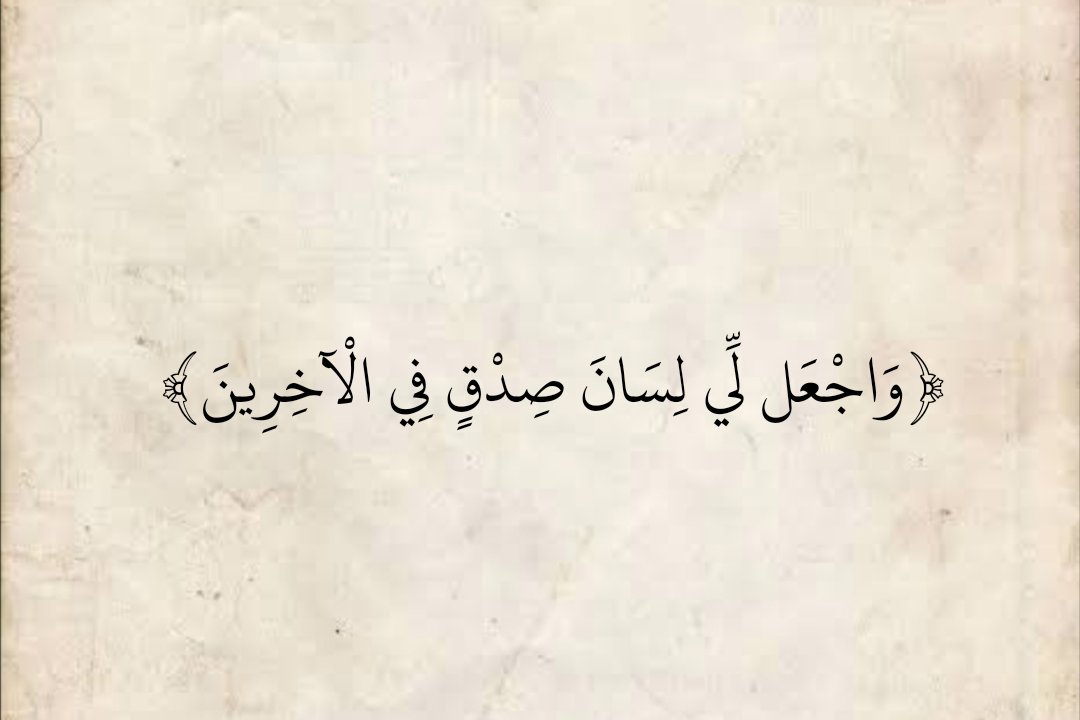 ﴿وَاجْعَل لِّي لِسَانَ صِدْقٍ فِي الْآخِرِينَ﴾